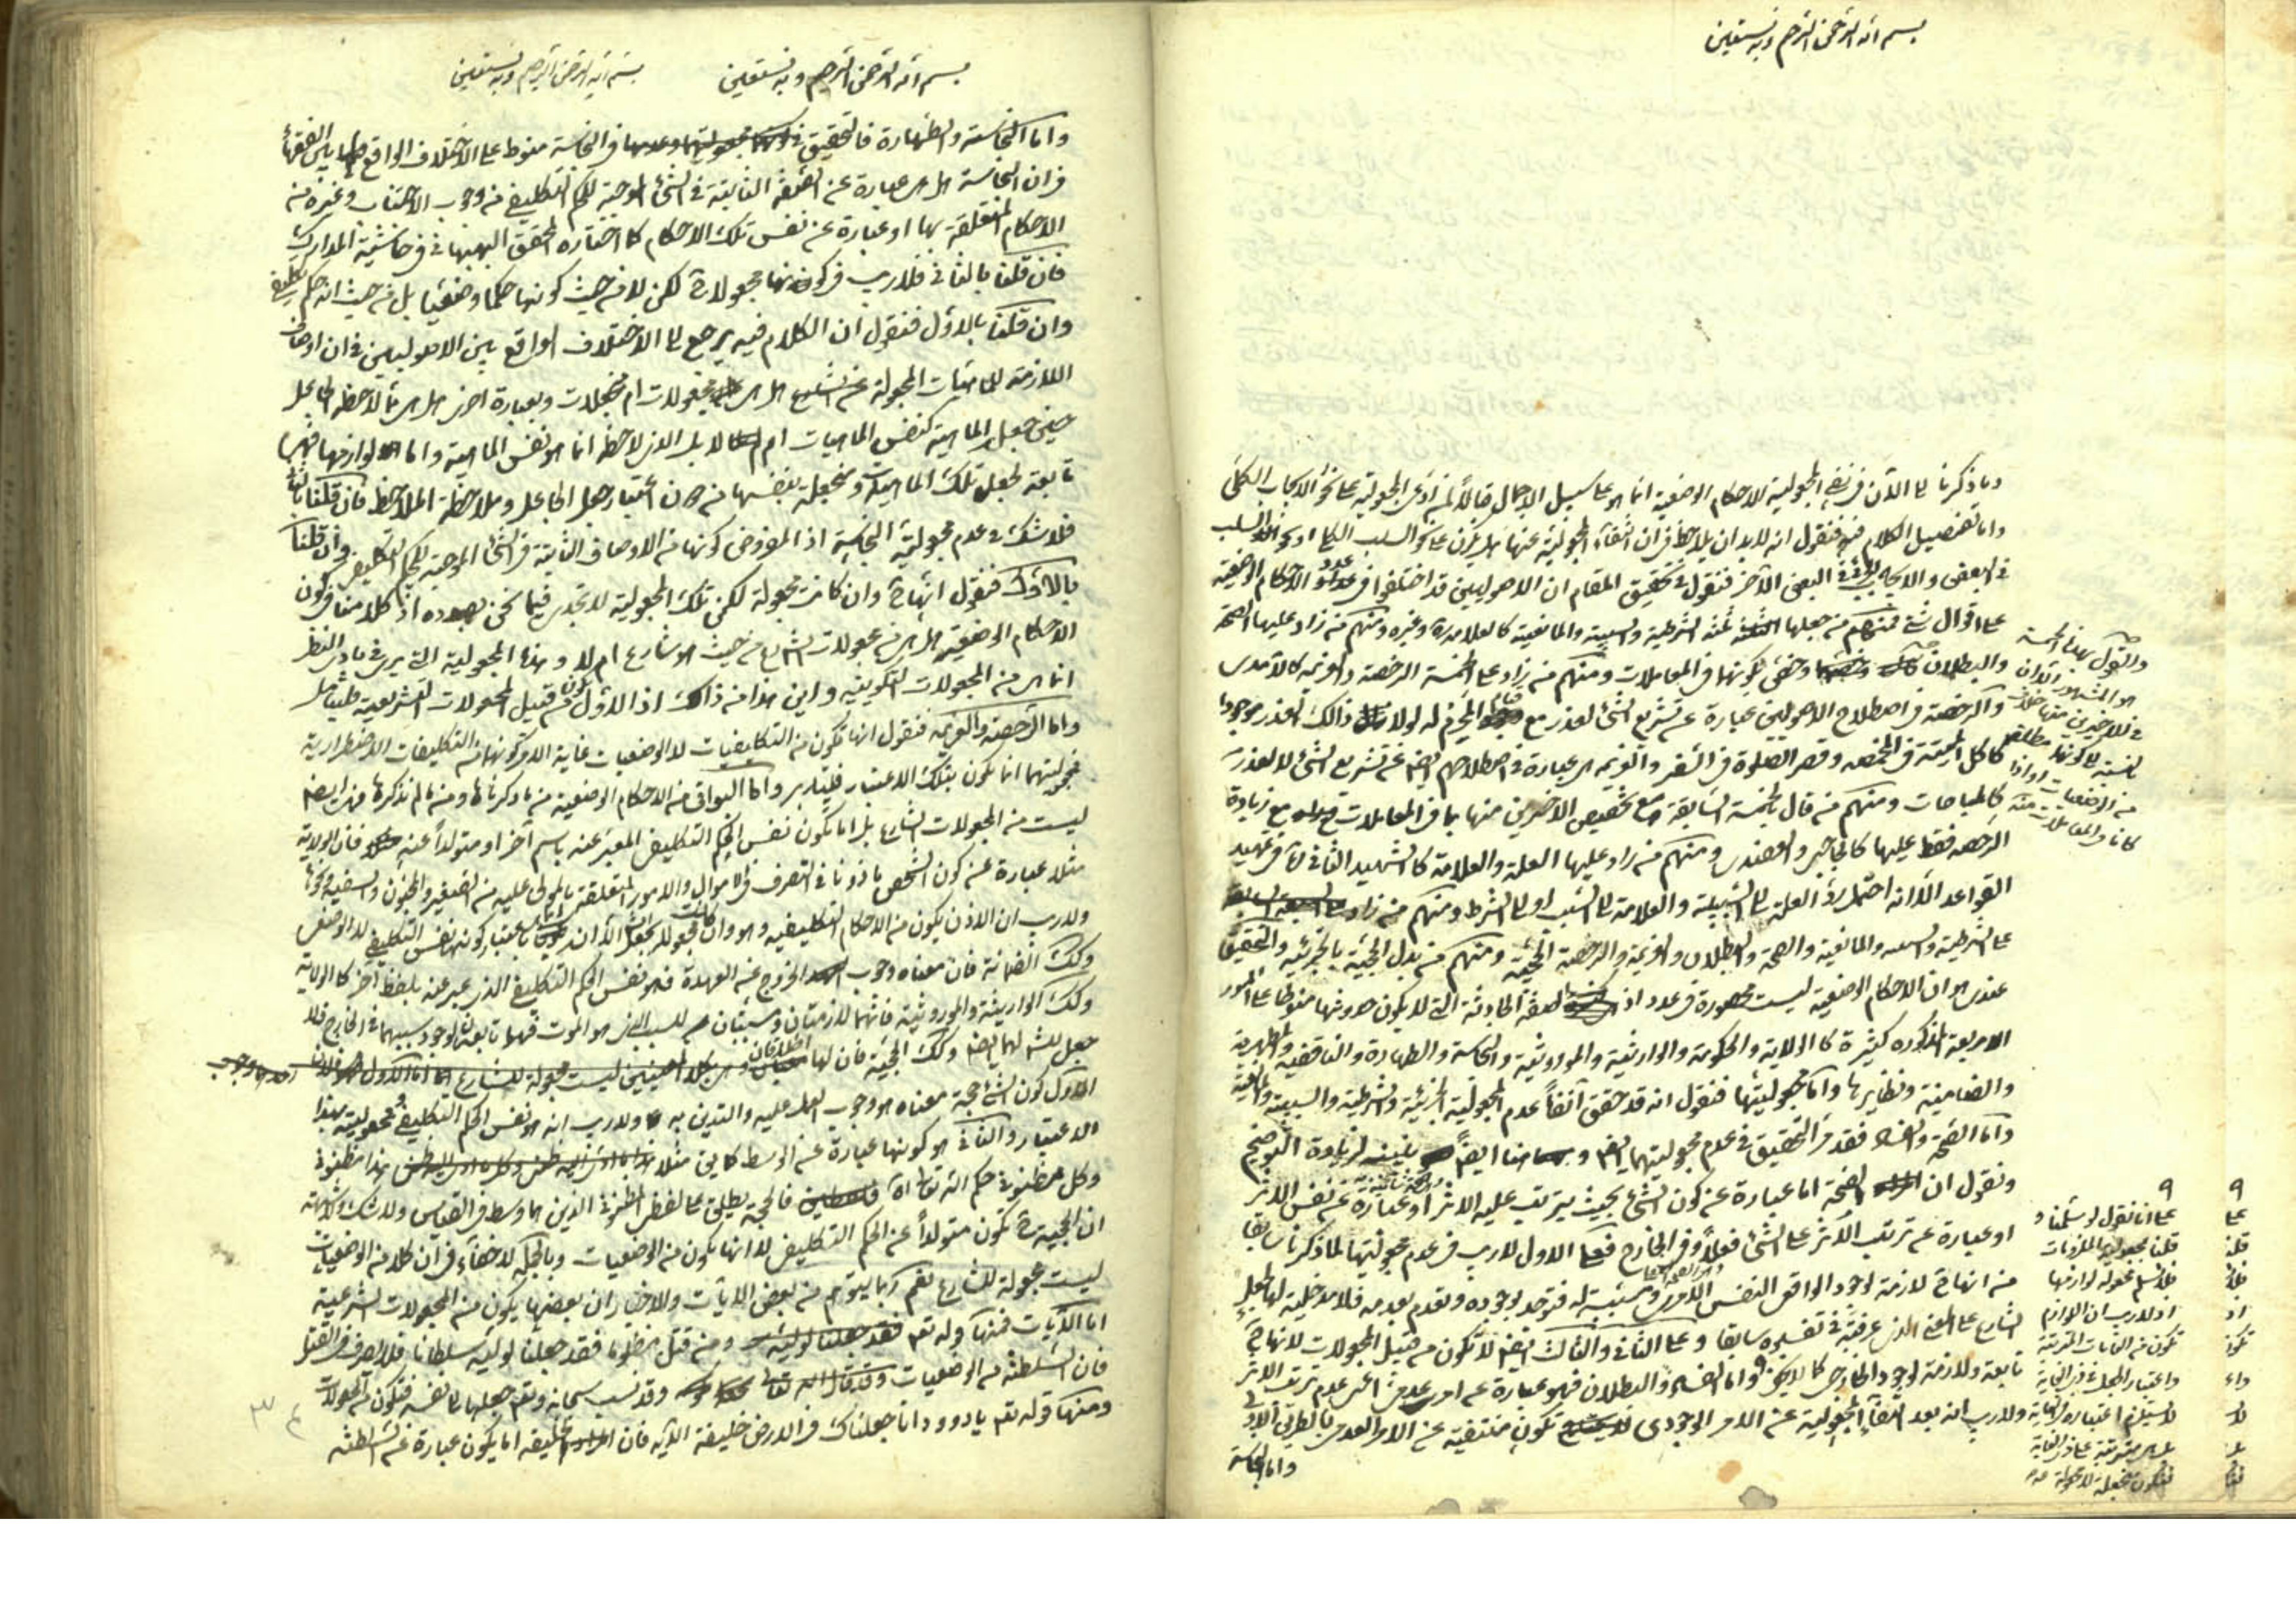 بسم الله الرحمن الرحيم وبه نستعين
وما ذكرنا الى الآن في نفي المجعولية للاحكام الوضعية انما هو على سبيل الاجمال قبالاً لمن ادعى المجعولية على نحو الايجاب الكلي
واما تفصيل الكلام فيه فنقول انه لابد ان يلاحظ في ان انتفاء المجعولية عنها هل يكون على نحو السلب الكلي او نحو السلب
في البعض والايجاب في البعض الآخر فنقول في تحقيق المقام ان الاصوليين قد اختلفوا في عدد الاحكام الوضعية
على اقوال شتى فمنهم من جعلها ثلثة الشرطية والسببية والمانعية كالعلامة وغيره ومنهم من زاد عليها الصحة
والبطلان وخص بكونها في المعاملات ومنهم من زاد على الخمسة الرخصة والعزيمة كالآمدي
والرخصة في اصطلاح الاصوليين عبارة عن تشريع الشئ لعذر مع قيام المحرم له لولا ذلك العذر موجوداً
كاكل الميتة في المخمصه وقصر الصلوة في السفر والعزيمه هي عبارة في اصطلاحهم ايضا عن تشريع الشئ لا لعذر
كالمباحات ومنهم من قال بالخمسة السابقة مع تخصيص الاخيرين منها بما في المعاملات مع زيادة
الرخصه فقط عليها كالحاجبي والعضدي ومنهم من زاد عليها العلة والعلامة كالشهيد الثاني في تمهيد
القواعد الا انه احتمل رد العلة الى السببية والعلامة الى السبب او الى الشرط ومنهم من زاد
على الشرطية والسببية والمانعية والصحة والبطلان والعزيمة والرخصة الحجية ومنهم من بدل الحجية بالجزئية والتحقيق
عندي هو ان الاحكام الوضعية ليست محصورة في عدد اذ الصفة الحادثة التي لا يكون حدوثها منوطا على الامور
الاربعة المذكوره كثيرة كالولاية والحكومة والوارثية والموروثية والنجاسة والطهارة والناقضية والمطهرية
والضامنية ونظايرها واما مجعوليتها فنقول انه قد حقق آنفاً عدم المجعولية الجزئية والشرطية والسببية والمانعية
واما الصحة والفساد فقد مر التحقيق في عدم مجعوليتهما ايضا وهنا ايضاً نبينه لزيادة التوضيح
ونقول ان الصحة اما عبارة عن كون الشئ بحيث يترتب عليه الاثر او عبارة عن نفس الاثر
او عبارة عن ترتب الاثر على الشئ فعلاً وفي الخارج فعلى الاول لا ريب في عدم مجعوليتها لما ذكرنا سابقا
من انها ح لازمة لوجود الواقع النفس الامري ومسببة له فتوجد بوجوده وتعدم بعدمه فلا مدخلية لها لجعل
الشارع على المعنى الذي عرفته في تفسيره سابقا وعلى الثاني والثالث ايضا لا تكون من قبيل المجعولات لانها ح
تابعة ولازمة لوجود الخارجي كما لا يخفى واما الفساد والبطلان فهو عبارة عن امر عدمي اعني عدم ترتب الاثر
ولا ريب انه بعد انتفاء المجعولية عن الامر الوجودي تكون منتفية عن الامر العدمي بالطريق الاولى
واما النجاسة
والقول بهذه الخمسة
هو المشهور
على انا نقول لو سلمنا و
قلنا بمجعولية الملزومات
فلا نسلم مجعولية لوازمها
اذ لا ريب ان اللوازم
تكون من الغايات المترتبة
واعتبار الجعل في ذي الغاية
لا يستلزم اعتباره في الغاية
بل هي مترتبة على ذي الغاية
فتكون منجعلة لا مجعولة منه
بسم الله الرحمن الرحيم وبه نستعين
بسم الله الرحمن الرحيم وبه نستعين
واما النجاسة والطهارة فالتحقيق في النجاسة منوط على الاختلاف الواقع بين الفقهاء
في ان النجاسة هل هي عبارة عن الصفة الثابتة في الشئ الموجبة للحكم التكليفي من وجوب الاجتناب وغيره من
الاحكام المتعلقة بها او عبارة عن نفس تلك الاحكام كما اختاره المحقق البهبهاني في حاشية المدارك
فان قلنا بالثاني فلا ريب في كونها مجعولات لكن لا من حيث كونها حكما وضعيا بل من حيث انه حكم تكليفي
وان قلنا بالاول فنقول ان الكلام فيه يرجع الى الاختلاف الواقع بين الاصوليين في ان اوصاف
اللازمة للماهيات المجعولة عن الشارع هل هي مجعولات ام منجعلات وبعبارة اخرى هل هي مما لاحظه الجاعل
حين جعل الماهية كنفس الماهيات ام لا بل الذي لاحظه انما هو نفس الماهية واما لوازمها فهي
تابعة لجعل تلك الماهيات ومنجعلة بنفسها من دون اعتبار جعل الجاعل وملاحظة الملاحظ فان قلنا بالثاني
فلا شك في عدم مجعولية النجاسة اذ المفروض كونها من الاوصاف الثابتة في الشئ الموجبة للحكم التكليفي وان قلنا
بالاول فنقول انها ح وان كانت مجعولة لكن تلك المجعولية لا تجدي فيما نحن بصدده اذ كلامنا في كون
الاحكام الوضعية هل هي من مجعولات الشارع من حيث هو شارع ام لا وهذه المجعولية التي يرى في بادي النظر
انما هي من المجعولات التكوينيه واين هذا من ذاك اذ الاول من قبيل المجعولات التشريعية
واما الرخصة والعزيمه فنقول انها تكون من التكليفيات لا الوضعيات غاية الامر كونها من التكليفات الاضطرارية
فمجعوليتهما انما يكون بتلك الاعتبار فليتدبر واما البواقي من الاحكام الوضعية من ما ذكرناها ومن ما لم نذكرها فهي ايضا
ليست من المجعولات الشارع بل اما يكون نفس الحكم التكليفي المعبر عنه باسم آخر او متولداً عنه فان الولاية
مثلا عبارة عن كون الشخص ماذونا في التصرف في الاموال والامور المتعلقة بالمولى عليه من الصغير والمجنون والسفيه ونحوها
ولا ريب ان الاذن يكون من الاحكام التكليفيه وهو وان كانت مجعولة بجعل الشارع الا ان باعتبار كونها نفس التكليف لا الوضعي
وكك الضمانة فان معناه وجوب الخروج عن العهدة فهو نفس الحكم التكليفي الذي عبر عنه بلفظ آخر كالولاية
وكك الوارثية والموروثية فانهما لازمتان ومسببتان للسبب الذي هو الموت فهما تابعتان لوجود سببهما في الخارج فلا
جعل للشارع لهما ايضا وكك الحجية فان لها اطلاقان
الاول كون الشئ حجة معناه هو وجوب العمل عليه والتدين به ولا ريب انه هو نفس الحكم التكليفي ومجعوليته بهذا
الاعتبار والثاني هو كونها عبارة عن الوسط كما في مثلا هذا مظنوني
وكل مظنوني حكم الله تعالى فالحجة يطلق على لفظ المظنون الذي هما وسط في القياس ولا شك
ان الحجية ح تكون متولداً عن الحكم التكليفي لا انها يكون من الوضعيات وبالجملة لا خفاء في ان كلا من الوضعيات
ليست مجعولة للشارع نعم ربما يتوهم من بعض الايات والاخبار ان بعضها يكون من المجعولات الشرعية
اما الآيات فمنها قوله تعم ومن قتل مظلوما فقد جعلنا لوليه سلطانا فلا يسرف في القتل
فان السلطنة من الوضعيات وقد نسب سبحانه وتعم جعلها الى نفسه فتكون من المجعولات
ومنها قوله تعم يا داوود انا جعلناك في الارض خليفة الآيه فان الخليفه اما يكون عبارة عن السلطنه